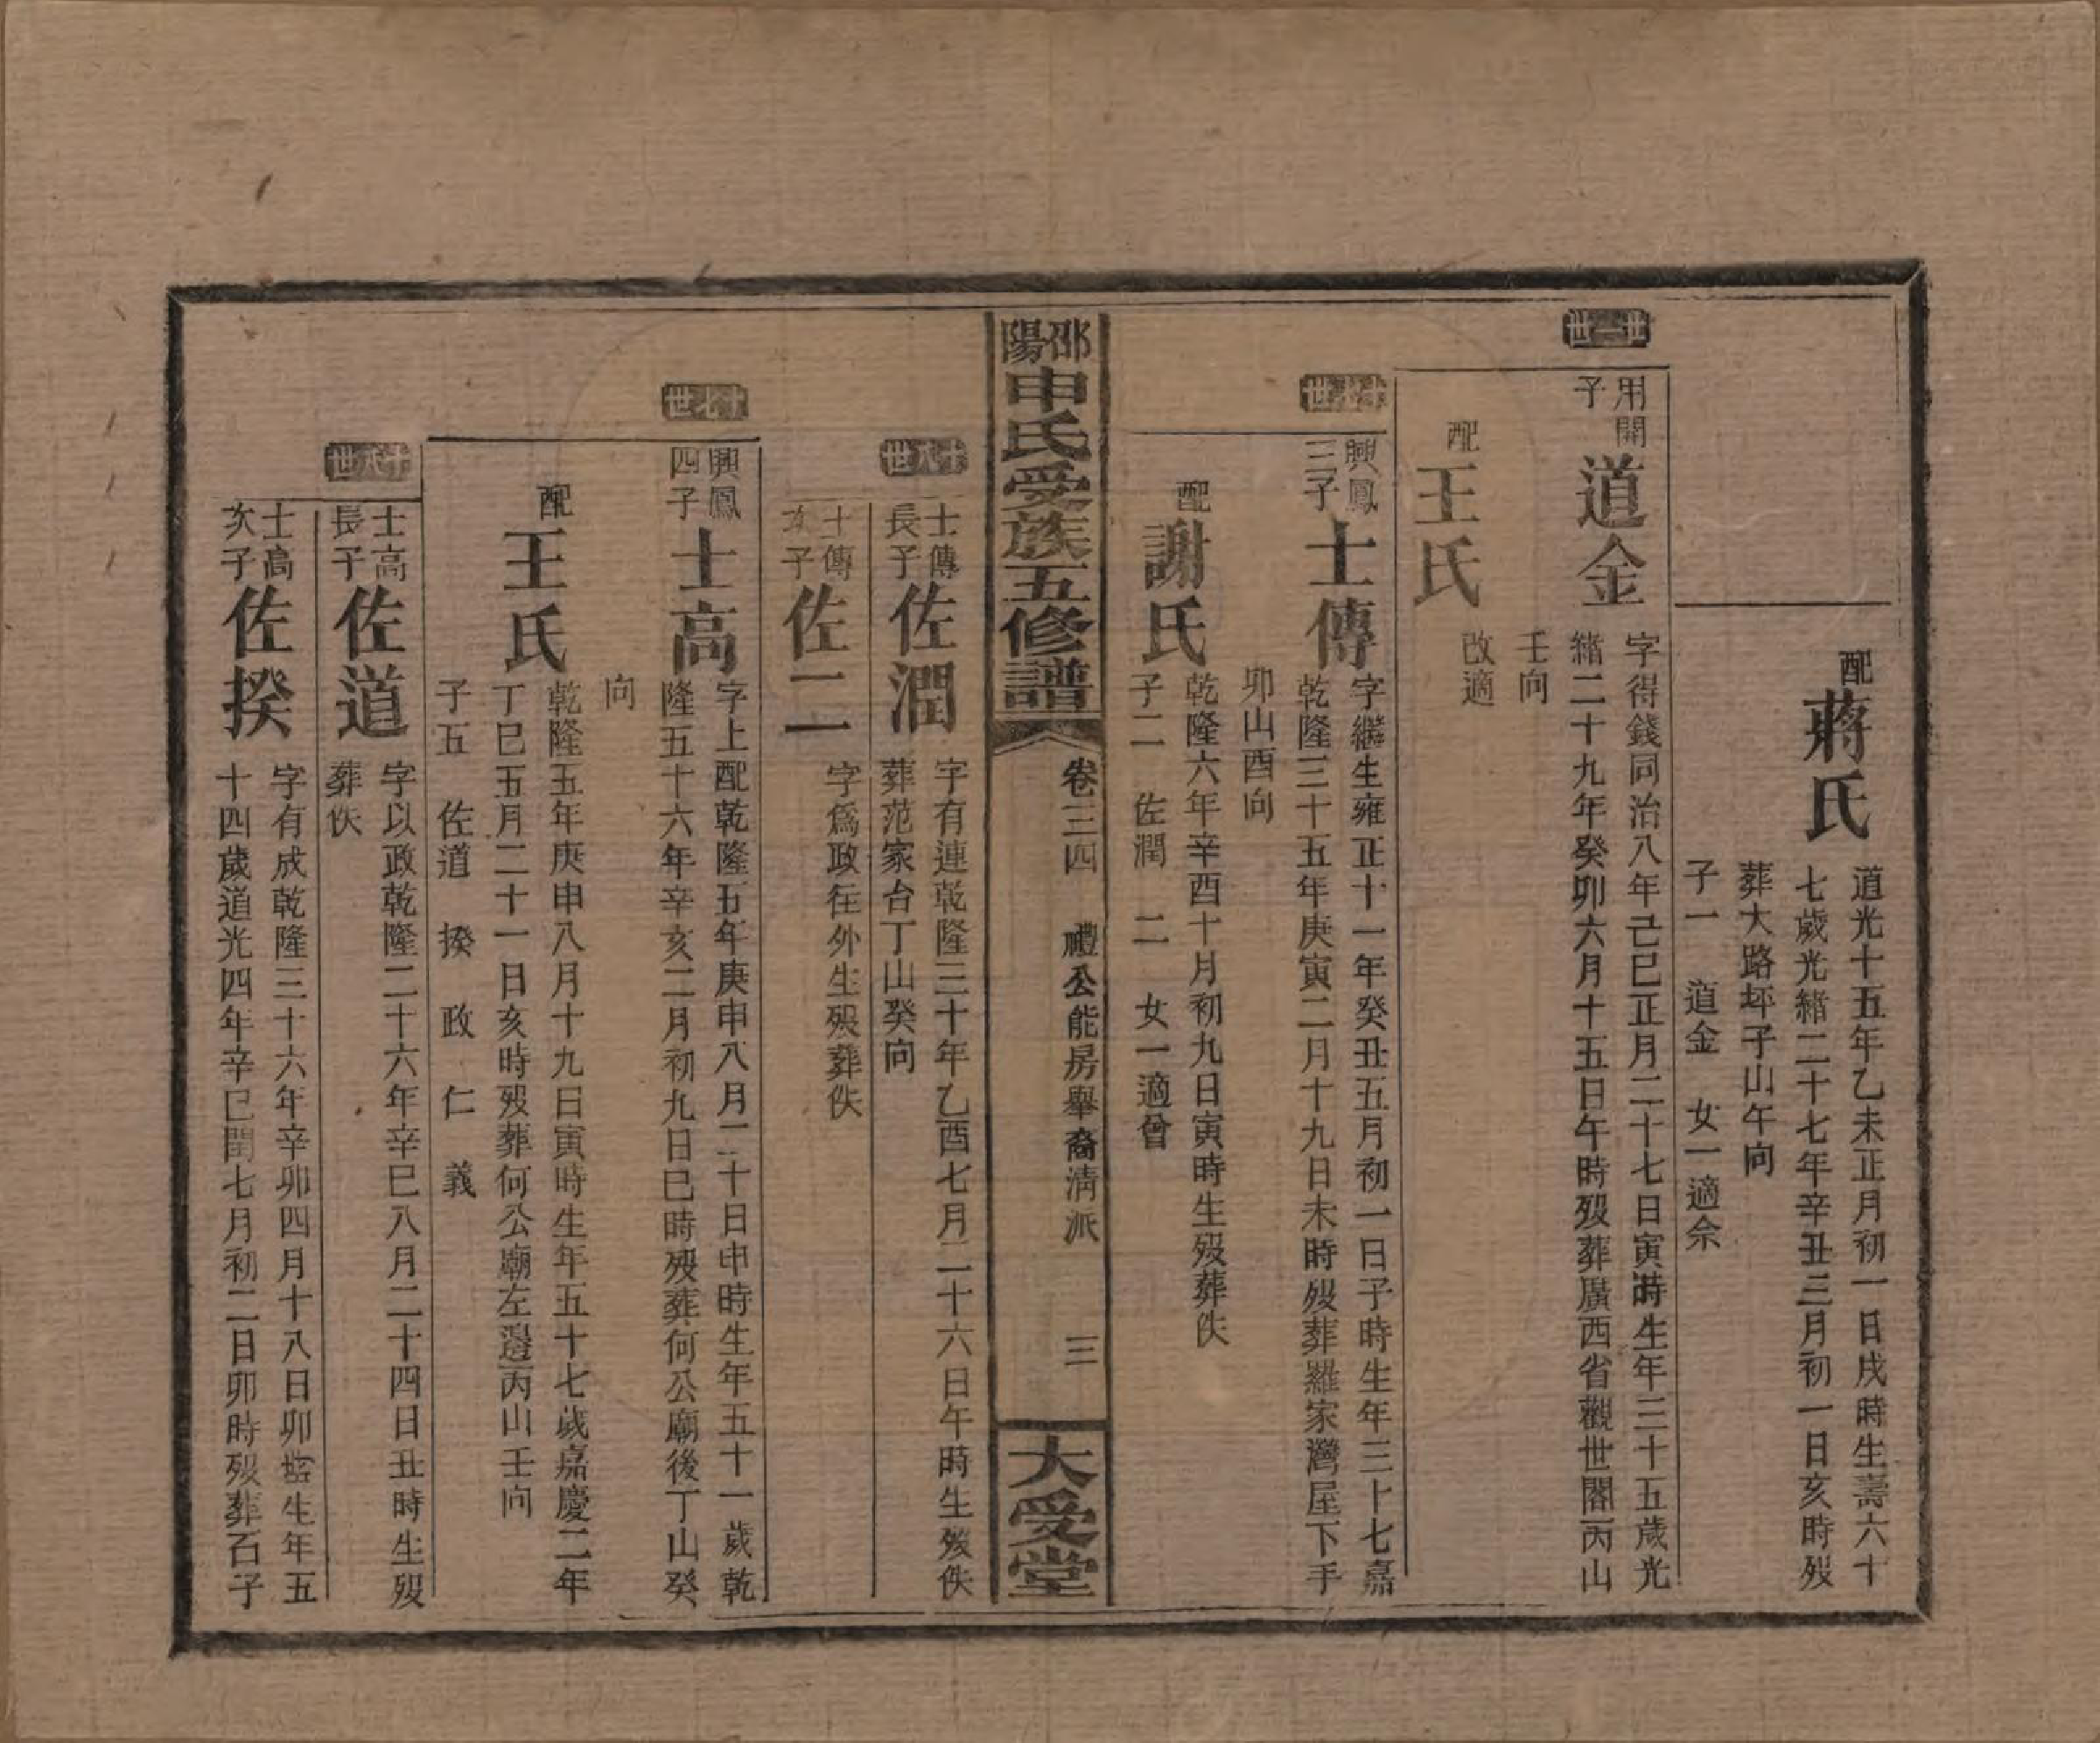 配
蔣氏
道光十五年乙未正月初一日戌時生壽六十
七歲光緒二十七年辛丑三月初一日亥時歿
葬大路坪子山午向
子一 道金 女一適佘
廿二世
用開
子
道金
字得錢同治八年己巳正月二十七日寅時生年三十五歲光
緒二十九年癸卯六月十五日午時歿葬廣西省觀世閣丙山
壬向
配
王氏
改適
十七世
興鳳
三子
士傳
字繼生雍正十一年癸丑五月初一日子時生年三十七嘉
乾隆三十五年庚寅二月十九日未時歿葬羅家灣屋下手
卯山酉向
配
謝氏
乾隆六年辛酉十月初九日寅時生歿葬佚
子二 佐潤 二 女一適曾
邵陽申氏受族五修譜
卷三四 禮公能房舉裔清派 三
大受堂
十八世
士傳
長子
佐潤
字有連乾隆三十年乙酉七月二十六日午時生歿佚
葬范家台丁山癸向
士傳
次子
佐二
字爲政往外生歿葬佚
十七世
興鳳
四子
士高
字上配乾隆五年庚申八月二十日申時生年五十一歲乾
隆五十六年辛亥二月初九日巳時歿葬何公廟後丁山癸
向
配
王氏
乾隆五年庚申八月十九日寅時生年五十七歲嘉慶二年
丁巳五月二十一日亥時歿葬何公廟左邉丙山壬向
子五 佐道 揆 政 仁 義
十八世
士高
長子
佐道
字以政乾隆二十六年辛巳八月二十四日丑時生歿
葬佚
士高
次子
佐揆
字有成乾隆三十六年辛卯四月十八日卯時生年五
十四歲道光四年辛巳閏七月初二日卯時歿葬石子